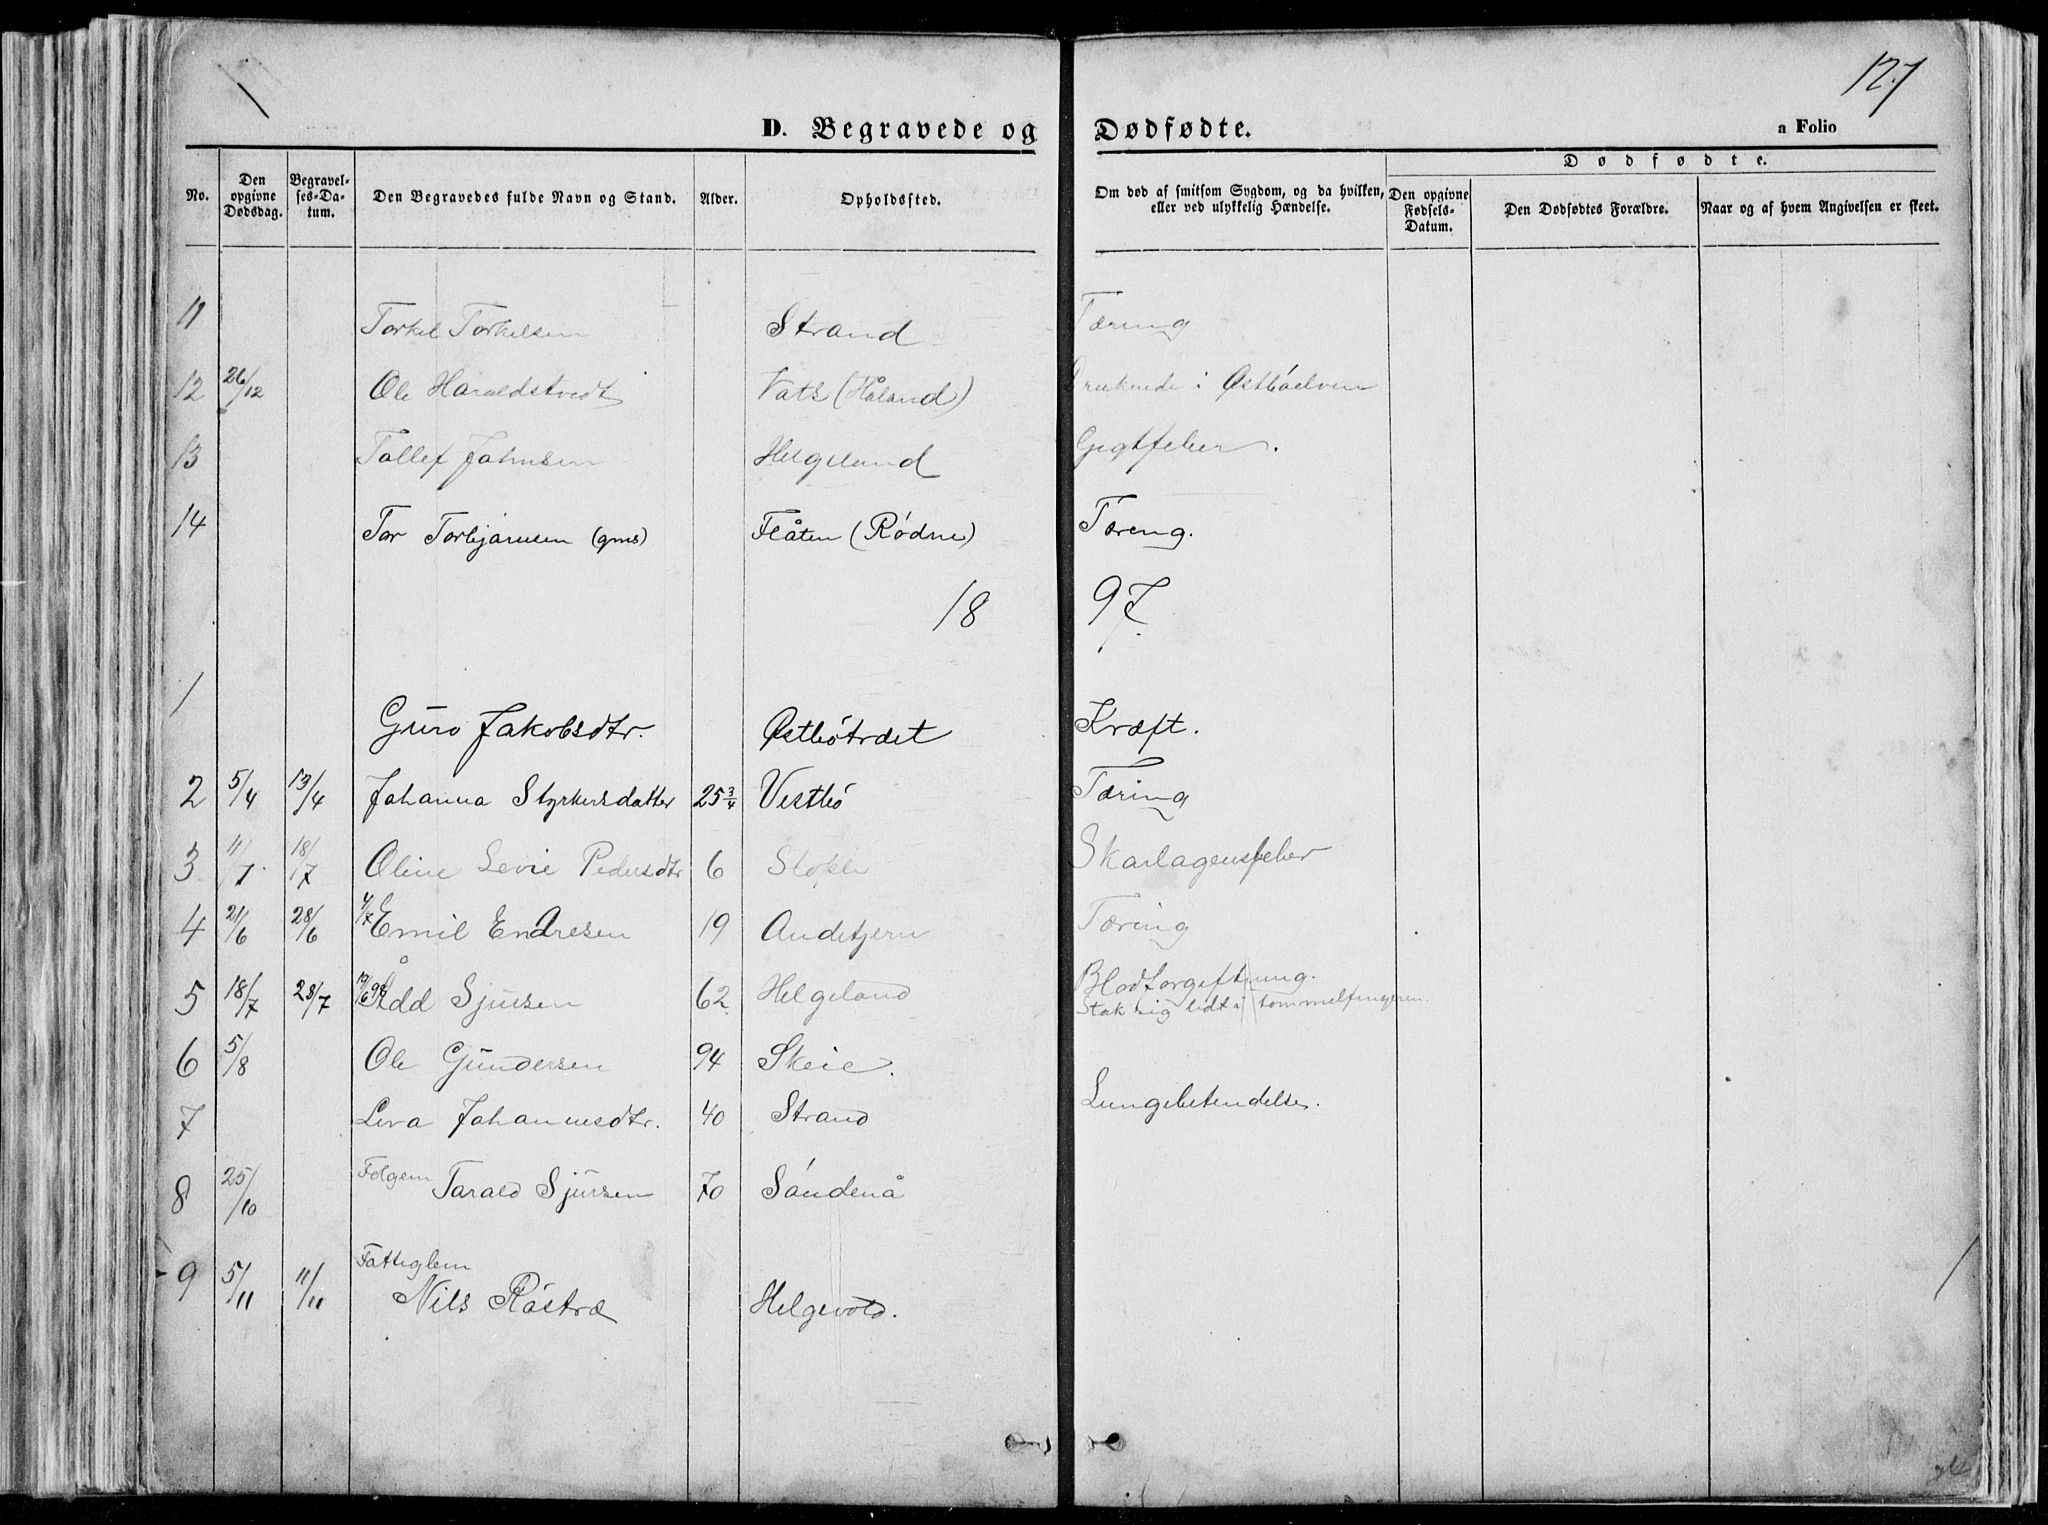 127
D. Begravede og Dødfødte.
a Folio
No.
Den opgivne Dødsdag.
Begravelses-Datum.
Den Begravedes fulde Navn og Stand.
Alder.
Opholdssted.
Om død af smitsom Sygdom, og da hvilken, eller ved ulykkelig Hændelse.
Dødfødte.
Den opgivne Fødsels-Datum.
Den Dødfødtes Forældre.
Naar og af hvem Angivelsen er skeet.
11 Torkel Torkelsen Strand Tæring
12 26/12 Ole Haraldstvedt Vats (Håland) i Østbóelven
13 Tollef Johnsen Helgeland Gigtfeber.
14 Tor Torbjørnsen (gms) Flåten (Rødne) Tæring.
18 97.
1 Guro Jakobsdtr. Østbótræet Kræft.
2 5/4 13/4 Johanna Styrkersdatter 25 3/4 Vestbó Tæring
3 11/7 18/7 Oline Sevie Pedersdtr 6 Stople Skarlagensfeber
4 21/6 28/6 4/7 Emil Endresen 19 Andetjern Tæring
5 18/7 28/7 Ådd Sjursen 62 Helgeland Blodforgiftning.
Stak sig lidt i tommelfingeren.
6 5/8 Ole Gundersen 94 Skeie.
7 Liva Johannesdtr. 40 Strand Lungebetendelse.
8 25/10 Folgem Tarald Sjursen 70 Sóndenå
9 5/11 11/11 Fattiglem
Nils Róstræ Helgevold.